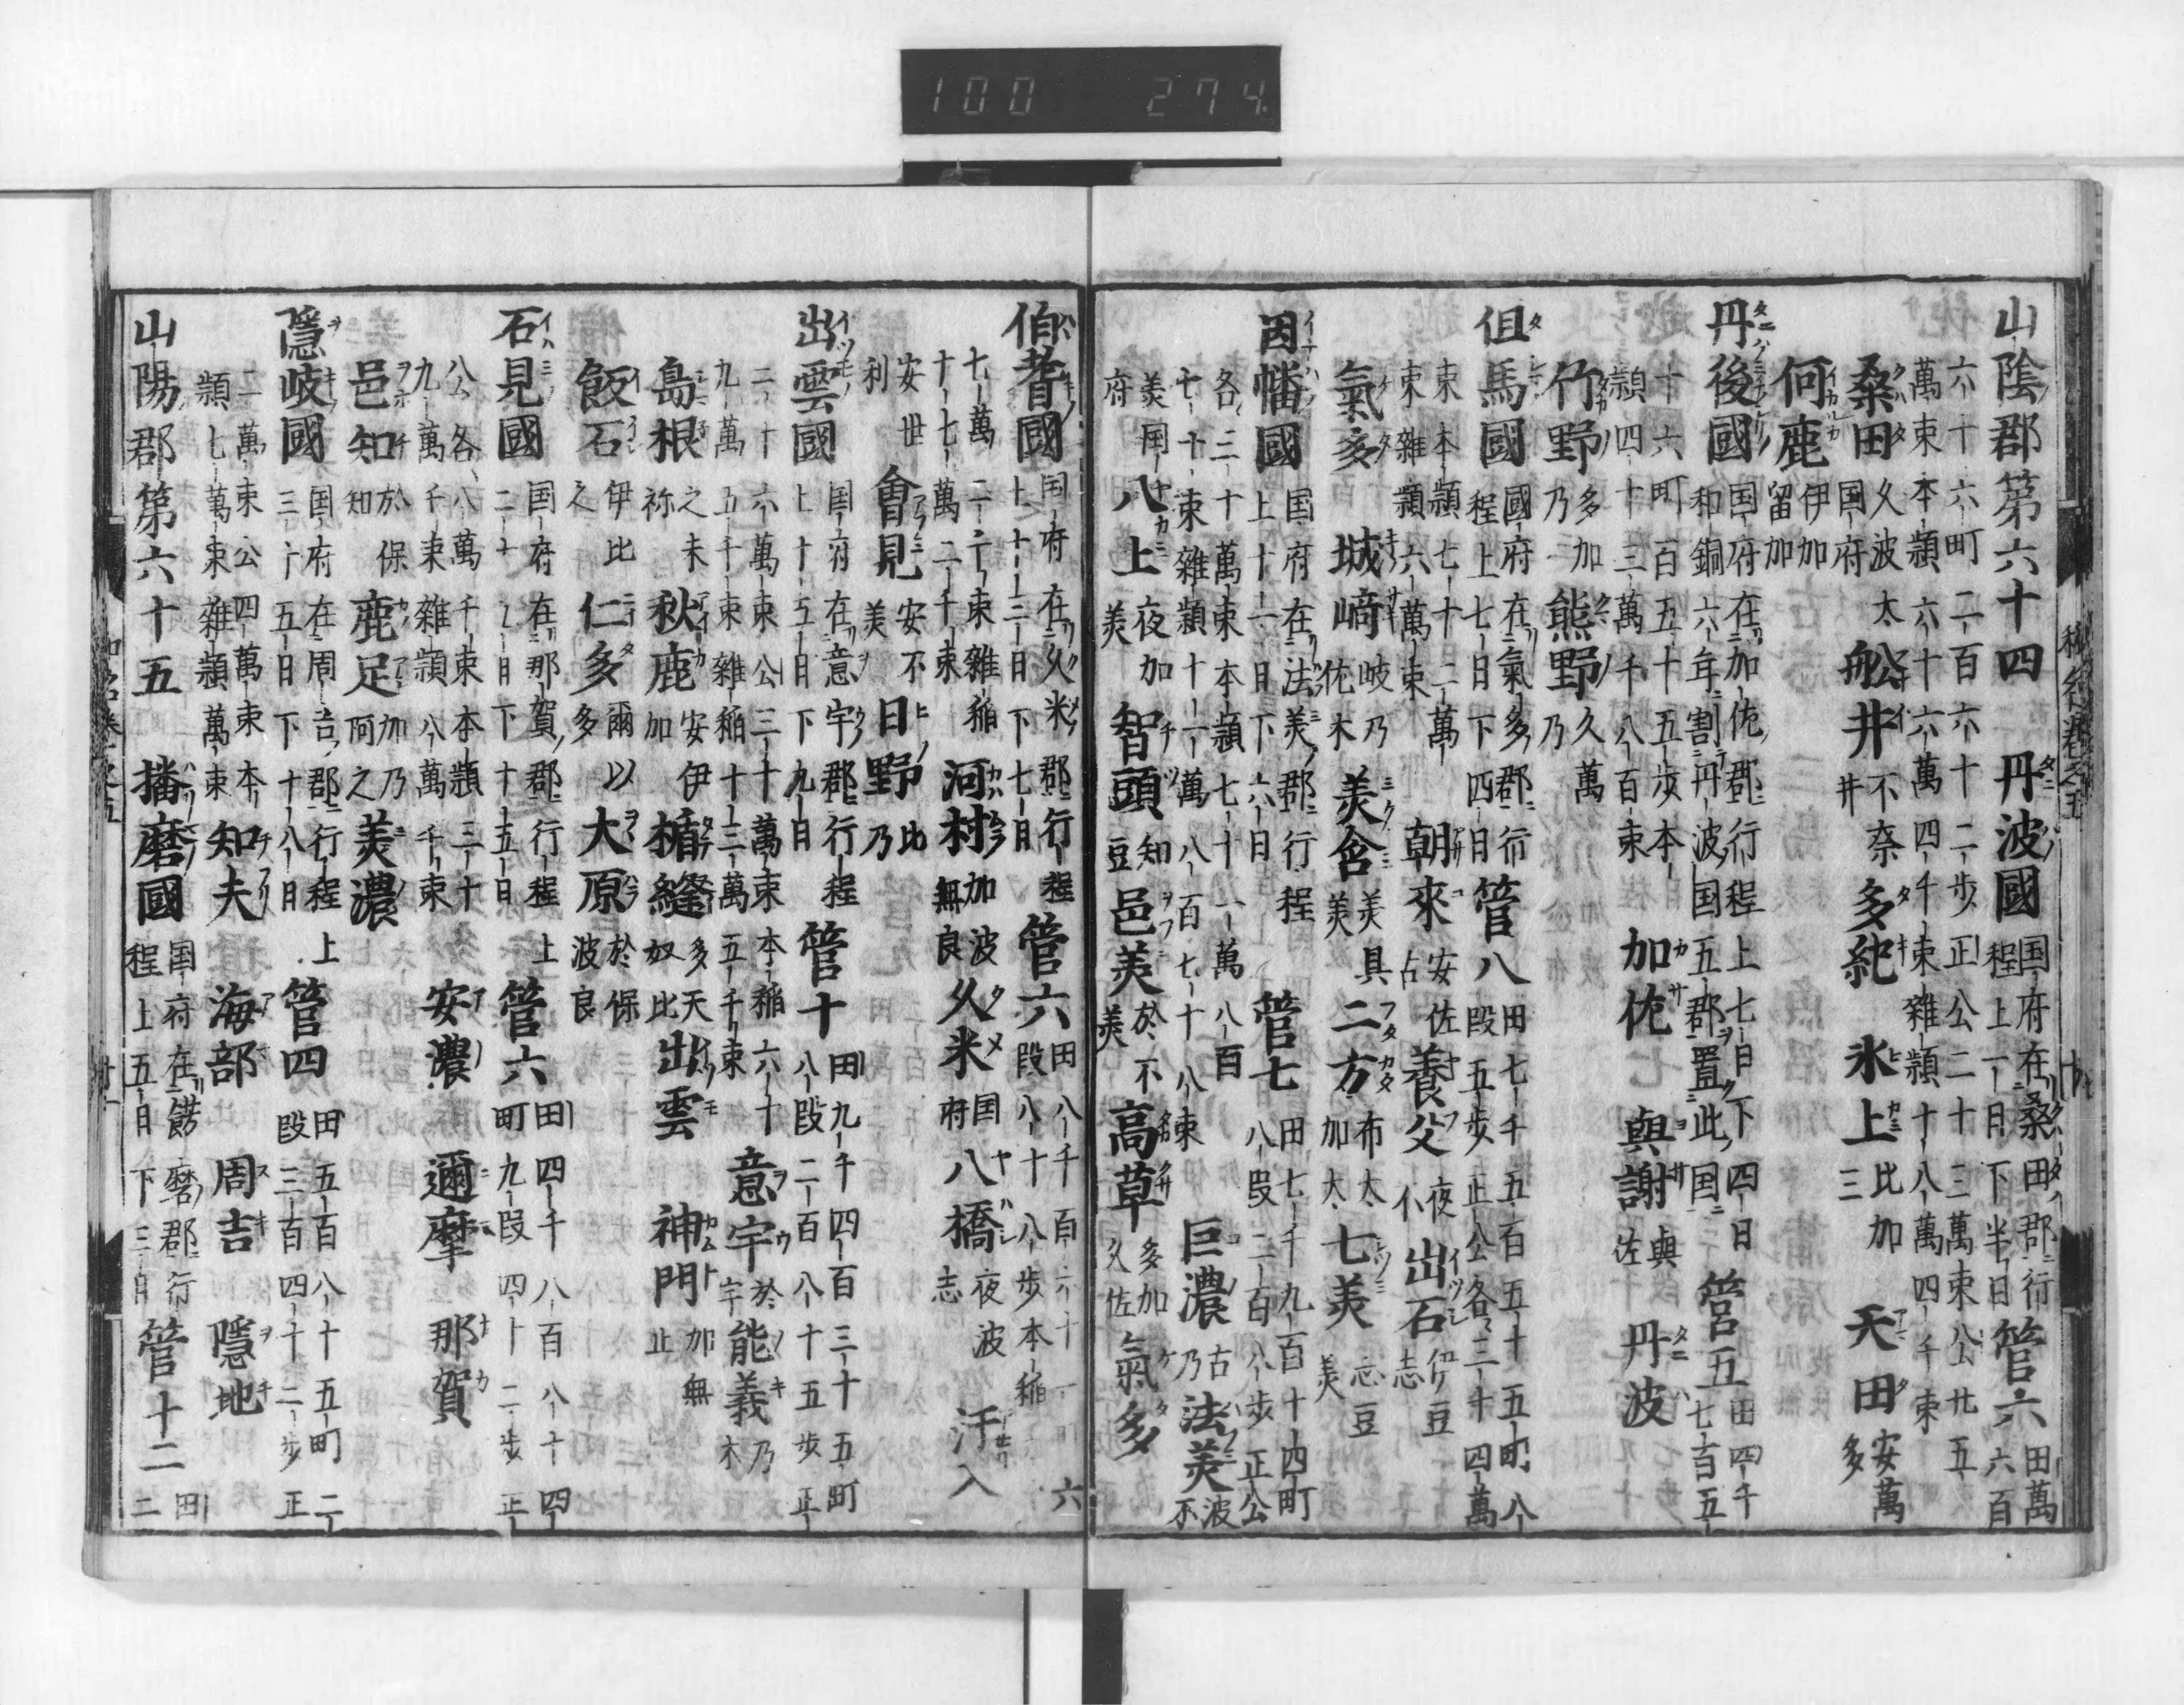 100 274
山陰郡第六十四 丹波國 国府在桑田郡行程上一日下半日 管六 田萬六百
六十六町二百六十二歩正公二十三萬束公廿五
萬束本頴六十六萬四千束雜頴十八萬四千束
桑田 久波太国府 舩井 不奈井 多紀 氷上 比加三 天田 安萬多
何鹿 伊加留加
丹後國 国府在加佐郡行程上七日下四日 和銅六年割丹波国五郡置此国 管五 田四千七百五
十六町百五十五歩本
頴四十三萬千八百束 加佐 與謝 與佐 丹波
竹野 多加乃 熊野 久萬乃
但馬國 國府在氣多郡行程上七日下四日 管八 田七千五百五十五町八段五歩正公各三十四萬
束本頴七十二萬
束雜頴六萬束 朝來 安佐古 養父 夜不 出石 伊豆志
氣多 城﨑 岐乃佐木 美含 美具美 二方 布太加太 七美 志豆美
因幡國 国府在法美郡行程上十二日下六日 管七 田七千九百十四町八段二百八歩正公
各二十萬束本頴七十一萬八百
七十束雜頴十一萬八百七十八束 巨濃 古乃 法美 波不
美国府 八上 夜加美 智頭 知豆 邑美 於不美 高草 多加久佐 氣多
伯耆國 国府在久米郡行程上十三日下七日 管六 田八千百六十一町六段八十八歩本稲
七萬二千束雜稲
十七萬二千束 河村 加波無良 久米 国府 八橋 夜波志 汙入
安世利 會見 安不美 日野 比乃
出雲國 国府在意宇郡行程上十五日下九日 管十 田九千四百三十五町八段二百八十五歩正
二十六萬束公三十萬束本稲六十
九萬五千束雜稲十三萬五千束 意宇 於宇 能義 乃木
島根 之末祢 秋鹿 安伊加 楯縫 多天奴比 出雲 神門 加無止
飯石 伊比之 仁多 爾以多 大原 於保波良
石見國 国府在那賀郡行程上二十九日下十五日 管六 田四千八百八十四町九段四十二歩正
八公各八萬千束本頴三十
九萬千束雜頴八萬千束 安濃 邇摩 那賀
邑知 於保知 鹿足 加乃阿之 美濃
隱岐國 国府在周吉郡行程上三十五日下十八日 管四 田五百八十五町二段三百四十二歩正
二萬束公四萬束本
頴七萬束雜頴萬束 知夫 海部 周吉 隱地
山陽郡第六十五 播磨國 国府在餝磨郡行程上五日下三日 管十二 田二